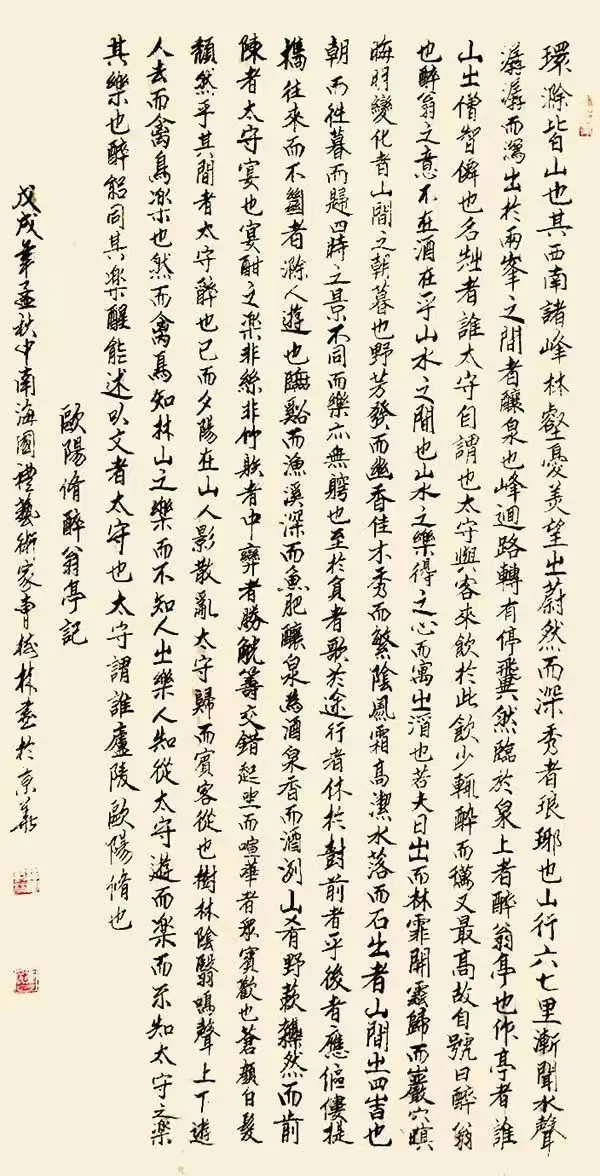 環滁皆山也其西南諸峰林壑憂美望之蔚然而深秀者琅琊也山行六七里漸聞水聲
潺潺而瀉出於兩峯之間者釀泉也峰迴路轉有停翼然臨於泉上者醉翁亭也作亭者誰
山之僧智僊也名之者誰太守自謂也太守與客來飲於此飲少輒醉而年又最高故自號曰醉翁
也醉翁之意不在酒在乎山水之間也山水之樂得之心而寓之酒也若夫日出而林霏開雲歸而巖穴暝
晦明變化者山間之朝暮也野芳發而幽香佳木秀而繁陰風霜高潔水落而石出者山間之四時也
朝而往暮而歸四時之景不同而樂亦無窮也至於負者歌於途行者休於樹前者乎後者應傴僂提
攜往來而不絕者滁人遊也臨谿而漁溪深而魚肥釀泉為酒泉香而酒洌山肴野蔌雜然而前
陳者太守宴也宴酣之樂非絲非竹射者中弈者勝觥籌交錯起坐而喧華者眾賓歡也蒼顏白髮
頹然乎其間者太守醉也已而夕陽在山人影散亂太守歸而賓客從也樹林陰翳鳴聲上下遊
人去而禽鳥樂也然而禽鳥知林山之樂而不知人之樂人知從太守遊而樂而不知太守之樂
其樂也醉能同其樂醒能述以文者太守也太守謂誰廬陵歐陽脩也
歐陽脩醉翁亭記
戊戌年孟秋中南海國禮藝術家曹樹林書於京華